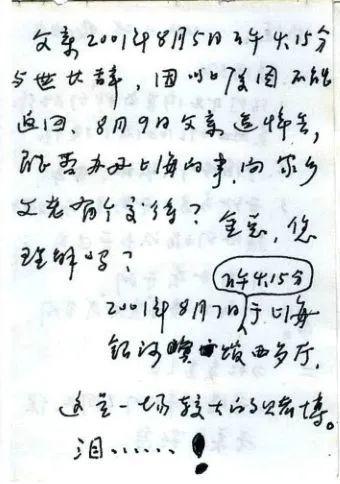 父亲2001年8月5日下午4:15分
与世长辞，因 原因不能
返回，8月9日父亲追悼会，
能否办好上海的事，向家乡
父老有个交待？ 您
理解吗？
下午4:15分
2001年8月7日于上海
银河宾 西多厅，
这是一场较大的 赌博。
泪……！